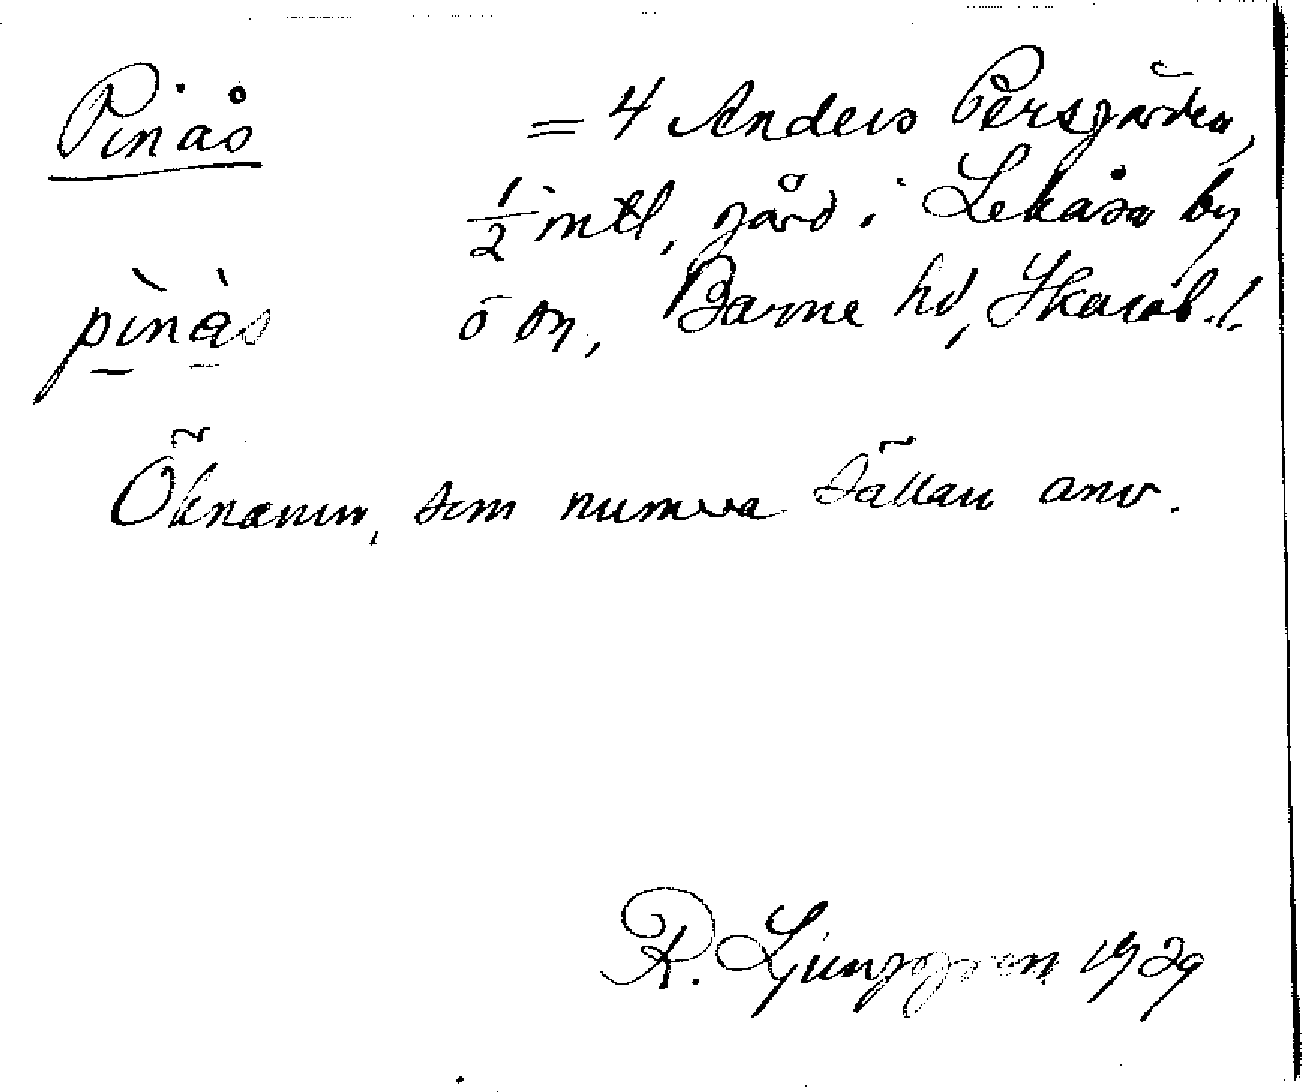 Pinås = 4 Anders Persgården,
1/2 mtl, gård i Lekåsa by
pìnàs o sn, Barne hd, Skarab. l.
Öknamn, som numera sällan anv.
R. Ljunggren 1929